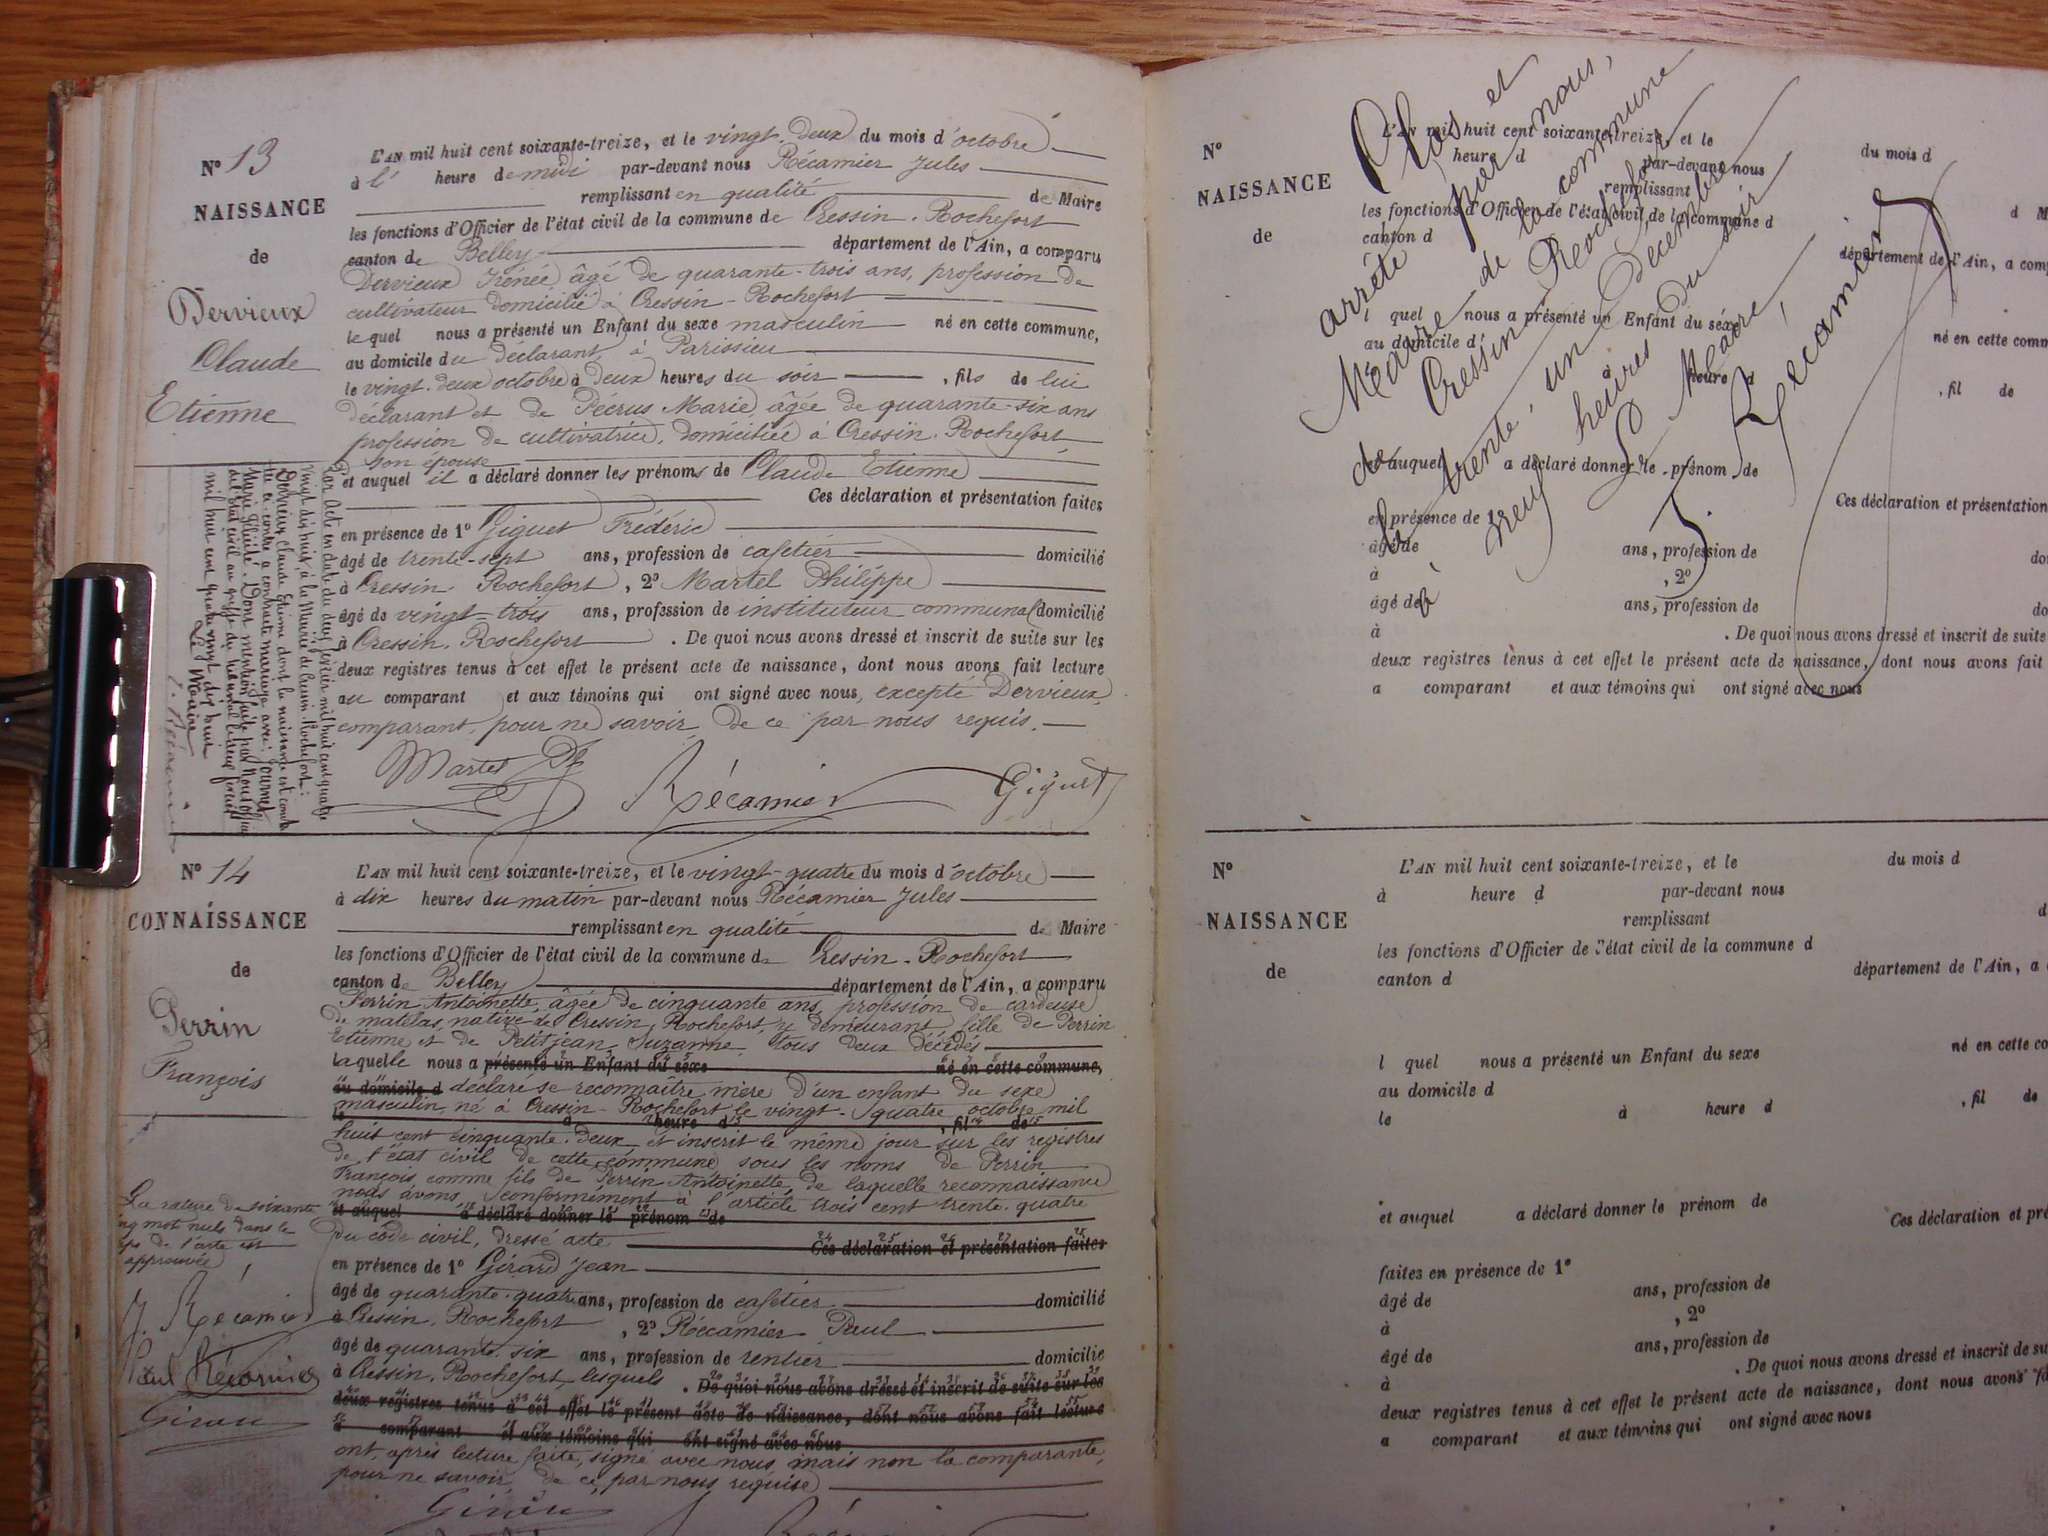 N° 13
NAISSANCE
de
Dervieux
Claude
Etienne
L'AN mil huit cent soixante-treize, et le vingt-deux du mois d'octobre
à l' heure de midi par-devant nous Récamier Jules
remplissant en qualité de Maire
les fonctions d'Officier de l'état civil de la commune de Cressin-Rochefort
canton de Belley département de l'Ain, a comparu
Dervieux Irénée, âgé de quarante-trois ans, profession de
cultivateur domicilié à Cressin-Rochefort
lequel nous a présenté un Enfant du sexe masculin né en cette commune,
au domicile du déclarant, à Parissieu
le vingt-deux octobre à deux heures du soir, fils de lui
déclarant et de Pécrus Marie, âgée de quarante-six ans
profession de cultivatrice, domiciliée à Cressin-Rochefort,
son épouse
et auquel il a déclaré donner les prénoms de Claude Etienne
Ces déclaration et présentation faites
en présence de 1° Giguet Frédéric
âgé de trente-sept ans, profession de cafetier domicilié
à Cressin-Rochefort, 2° Martel Philippe
âgé de vingt-trois ans, profession de instituteur communal domicilié
à Cressin-Rochefort. De quoi nous avons dressé et inscrit de suite sur les
deux registres tenus à cet effet le présent acte de naissance, dont nous avons fait lecture
au comparant et aux témoins qui ont signé avec nous, excepté Dervieux,
comparant, pour ne savoir, de ce par nous requis.
Martel Récamier Giguet
Par acte en date du dix février mil huit cent quatre
vingt dix huit, à la Mairie de Cressin-Rochefort,
Dervieux Claude Etienne dont la naissance est
ci-contre a contracté mariage avec
Marie
mil huit cent quatre vingt dix huit
Le Maire
J. Récamier
N° 14
CONNAISSANCE
de
Perrin
François
L'AN mil huit cent soixante-treize, et le vingt-quatre du mois d'octobre
à dix heures du matin par-devant nous Récamier Jules
remplissant en qualité de Maire
les fonctions d'Officier de l'état civil de la commune de Cressin-Rochefort
canton de Belley département de l'Ain, a comparu
Perrin Antoinette, âgée de cinquante ans, profession de cardeuse
de matelas, native de Cressin-Rochefort, y demeurant, fille de Perrin
Etienne et de Petitjean Suzanne, tous deux décédés
laquelle nous a présenté un Enfant du sexe né en cette commune,
au domicile d déclaré se reconnaître mère d'un enfant du sexe
masculin, né à Cressin-Rochefort le vingt-quatre octobre mil
le à heure d , fil de
huit cent cinquante-deux et inscrit le même jour sur les registres
de l'état civil de cette commune sous les noms de Perrin
François, comme fils de Perrin Antoinette, de laquelle reconnaissance
nous avons, conformément à l'article trois cent trente-quatre
et auquel a déclaré donner le prénom de
du code civil, dressé acte Ces déclaration et présentation faites
en présence de 1° Girard Jean
âgé de quarante-quatre ans, profession de cafetier domicilié
à Cressin-Rochefort, 2° Récamier Paul
âgé de quarante-six ans, profession de rentier domicilié
à Cressin-Rochefort, lesquels. De quoi nous avons dressé et inscrit de suite sur les
deux registres tenus à cet effet le présent acte de naissance, dont nous avons fait lecture
a comparant et aux témoins qui ont signé avec nous
ont, après lecture faite, signé avec nous, mais non la comparante,
pour ne savoir, de ce, par nous requise
La rature de soixante
mot nuls dans le
de l'acte est
approuvée
J. Récamier
Paul Récamier
Girard
Clos et
arrêté par nous,
Maire de la commune
de Cressin-Rochefort
le trente-un Décembre
à neuf heures du soir
Le Maire,
J. Récamier
N°
NAISSANCE
de
L'AN mil huit cent soixante-treize, et le du mois d
heure d par-devant nous
remplissant d M
les fonctions d'Officier de l'état civil de la commune d
canton d département de l'Ain, a comp
quel nous a présenté un Enfant du sexe né en cette comm
au domicile d
à heure d , fil de
et auquel a déclaré donner le prénom de
Ces déclaration et présentation
en présence de 1°
âgé de ans, profession de do
à , 2°
âgé de ans, profession de do
à . De quoi nous avons dressé et inscrit de suite
deux registres tenus à cet effet le présent acte de naissance, dont nous avons fait
a comparant et aux témoins qui ont signé avec nous
N°
NAISSANCE
de
L'AN mil huit cent soixante-treize, et le du mois d
à heure d par-devant nous
remplissant d
les fonctions d'Officier de l'état civil de la commune d
canton d département de l'Ain, a
l quel nous a présenté un Enfant du sexe né en cette co
au domicile d
le à heure d , fil de
et auquel a déclaré donner le prénom de
Ces déclaration et pré
faites en présence de 1°
âgé de ans, profession de
à , 2°
âgé de ans, profession de
à . De quoi nous avons dressé et inscrit de su
deux registres tenus à cet effet le présent acte de naissance, dont nous avons fa
a comparant et aux témoins qui ont signé avec nous